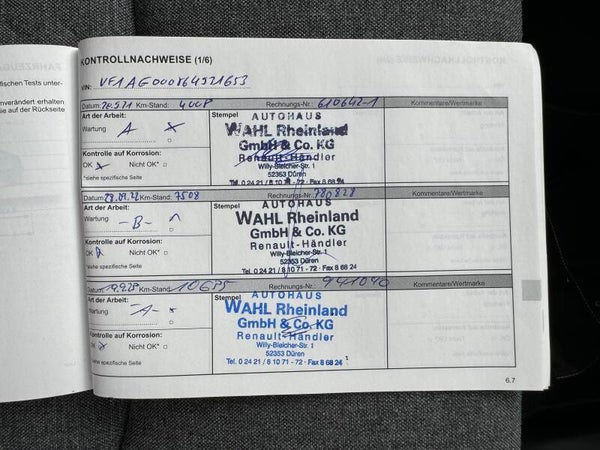 FAHRZEUGA
fischen Tests unter-
nverändert erhalten
ie auf der Rückseite
KONTROLLNACHWEISE (1/6)
VIN: VF1AG000864521653
Datum: Km-Stand: Rechnungs-Nr.: 610642-1 Kommentare/Wertmarke
Art der Arbeit:
Wartung A x
Stempel
AUTOHAUS
WAHL Rheinland
GmbH & Co. KG
Renault-Händler
Willy-Bleicher-Str. 1
52353 Düren
Tel. 0 24 21 / 8 10 71 - 72 · Fax 8 68 24
Kontrolle auf Korrosion:
OK x Nicht OK*
*siehe spezifische Seite
Datum: 28.09.22 Km-Stand: 7508 Rechnungs-Nr.: Kommentare/Wertmarke
Art der Arbeit:
Wartung -B-
Stempel
AUTOHAUS
WAHL Rheinland
GmbH & Co. KG
Renault-Händler
Willy-Bleicher-Str. 1
52353 Düren
Tel. 0 24 21 / 8 10 71 - 72 · Fax 8 68 24
Kontrolle auf Korrosion:
OK Nicht OK*
*siehe spezifische Seite
Datum: Km-Stand: Rechnungs-Nr.: 941040 Kommentare/Wertmarke
Art der Arbeit:
Wartung -A-
Stempel
AUTOHAUS
WAHL Rheinland
GmbH & Co. KG
Renault-Händler
Willy-Bleicher-Str. 1
52353 Düren
Tel. 0 24 21 / 8 10 71 - 72 · Fax 8 68 24
Kontrolle auf Korrosion:
OK Nicht OK*
*siehe spezifische Seite
6.7